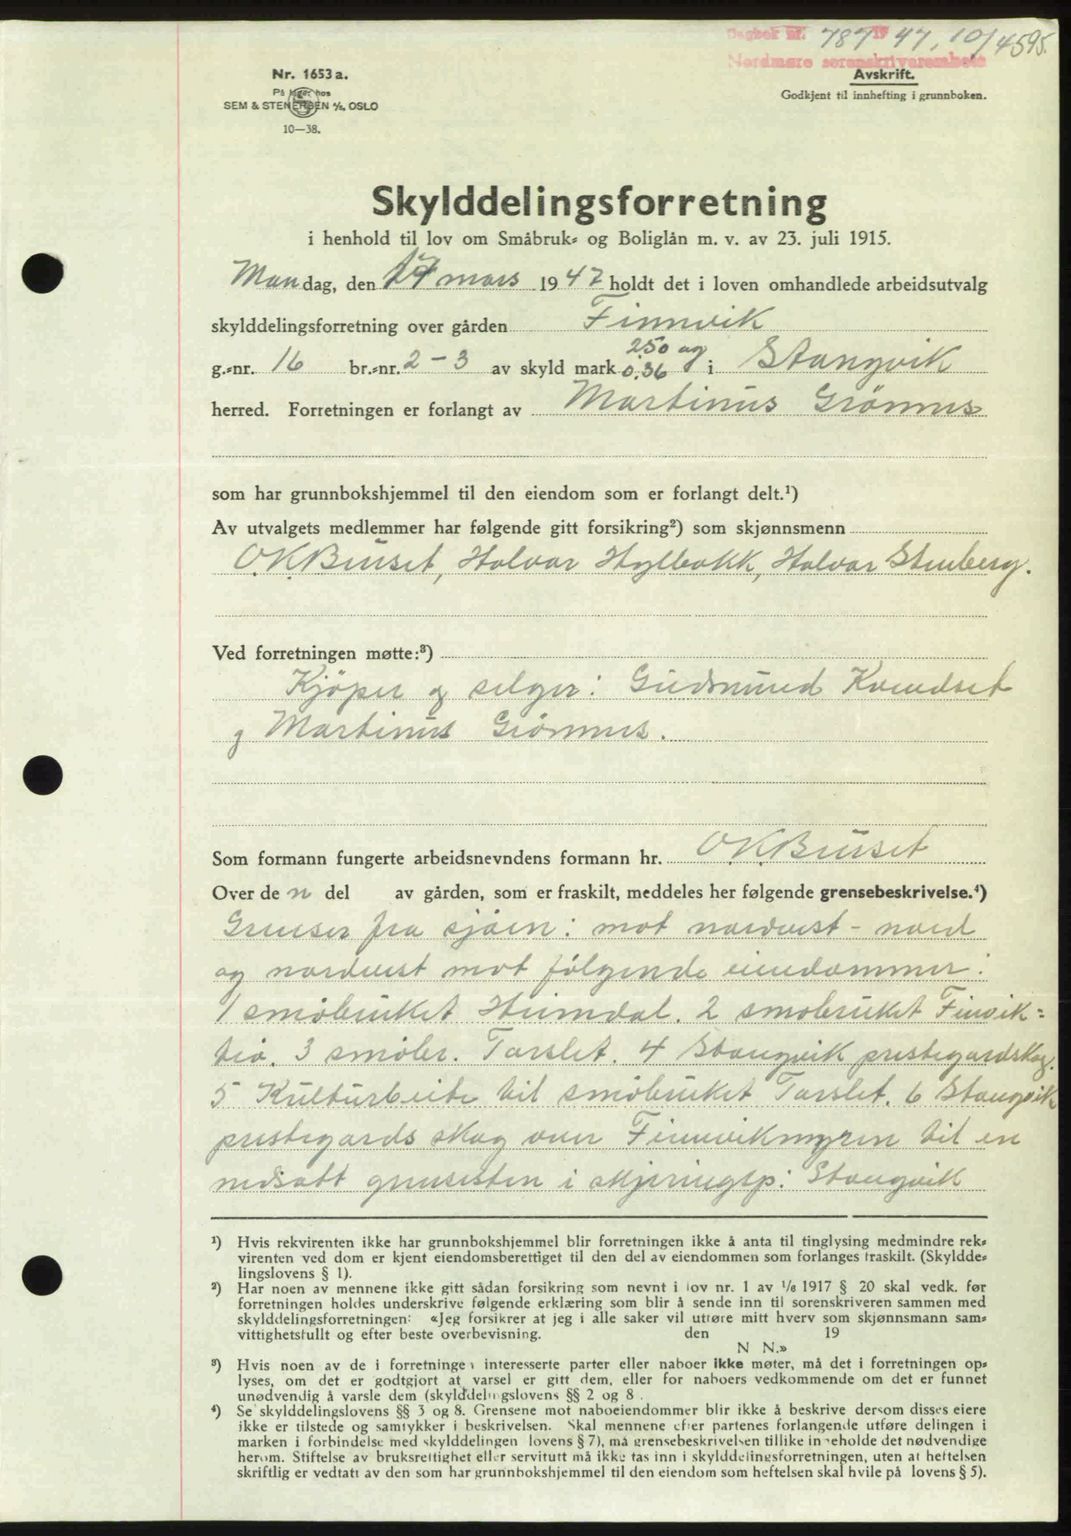 Dagbok nr. 787 19 47, 10/4 595.
Nordmøre sorenskriverembete
Nr. 1653 a.
På lager hos
SEM & STENERSEN A/S, OSLO
10—38.
Avskrift.
Godkjent til innhefting i grunnboken.
Skylddelingsforretning
i henhold til lov om Småbruk- og Boliglån m. v. av 23. juli 1915.
Mandag, den 17 mars 1947 holdt det i loven omhandlede arbeidsutvalg
skylddelingsforretning over gården Finnvik
g.-nr. 16 br.-nr. 2 - 3 av skyld mark 250 og 0.36 i Stangvik
herred. Forretningen er forlangt av Martinus Grønnes
som har grunnbokshjemmel til den eiendom som er forlangt delt.¹)
Av utvalgets medlemmer har følgende gitt forsikring²) som skjønnsmenn
O.K. Bruset, Halvar Hyllbakk, Halvar Stenberg.
Ved forretningen møtte:³)
Kjöper og selger: Gudmund Kvendset
g Martinus Grönnes.
Som formann fungerte arbeidsnevndens formann hr. O.K. Bruset
Over den del av gården, som er fraskilt, meddeles her følgende grensebeskrivelse.⁴)
Grenser fra sjøen: mot nordvest - nord
og nordvest mot følgende eiendommer:
1 småbruket Heimdal. 2 småbruket Finvik-
bio. 3 småbr. Tarslet. 4 Stangvik prestegardskog.
5 Kulturbeite til småbruket Tarslet. 6 Stangvik
prestegards skog over Finnvikmyren til en
nedsatt grensesten i skjeringsp: Stangvik
¹) Hvis rekvirenten ikke har grunnbokshjemmel blir forretningen ikke å anta til tinglysing medmindre rek-
virenten ved dom er kjent eiendomsberettiget til den del av eiendommen som forlanges fraskilt. (Skyldde-
lingslovens § 1).
²) Har noen av mennene ikke gitt sådan forsikring som nevnt i lov nr. 1 av 1/6 1917 § 20 skal vedk. før
forretningen holdes underskrive følgende erklæring som blir å sende inn til sorenskriveren sammen med
skylddelingsforretningen: «Jeg forsikrer at jeg i alle saker vil utføre mitt hverv som skjønnsmann sam-
vittighetsfullt og efter beste overbevisning. den 19
N N.»
³) Hvis noen av de i forretningen interesserte parter eller naboer ikke møter, må det i forretningen op-
lyses, om det er godtgjort at varsel er gitt dem, eller for naboers vedkommende om det er funnet
unødvendig å varsle dem (skylddelingslovens §§ 2 og 8 .
⁴) Se skylddelingslovens §§ 3 og 8. Grensene mot naboeiendommer blir ikke å beskrive dersom disses eiere
ikke er tilstede og samtykker i beskrivelsen. Skal mennene efter partenes forlangende utføre delingen i
marken i forbindelse med skylddelingen lovens § 7), må grensebeskrivelsen tillike inneholde det nødvendige
herom. Stiftelse av bruksrettighet eller servitutt må ikke tas inn i skylddelingsforretningen, uten at heftelsen
skriftlig er vedtatt av den som har grunnbokshjemmel til den eiendom som heftelsen skal hvile på lovens § 5).